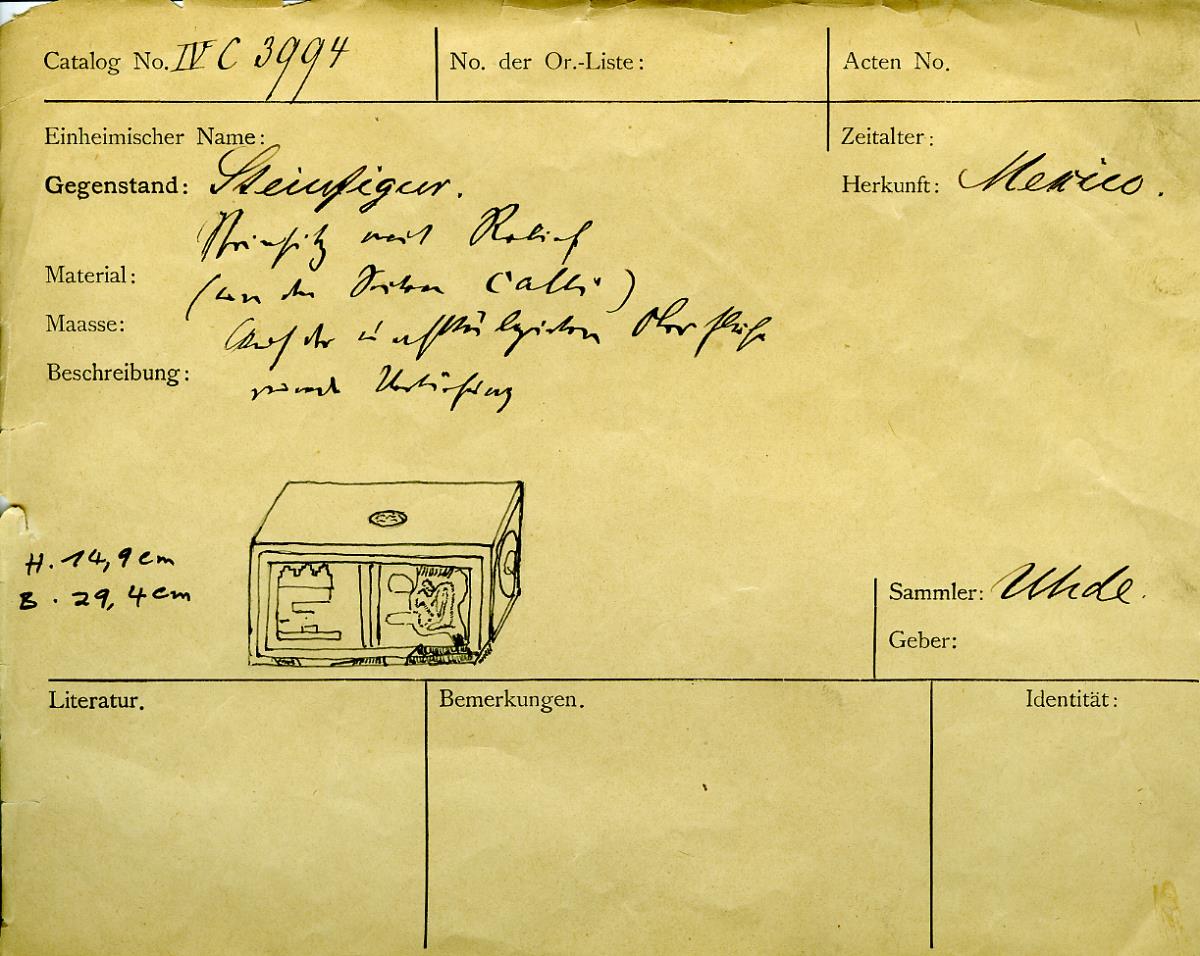 Catalog No. IV C 3994
No. der Or.-Liste:
Acten No.
Einheimischer Name:
Zeitalter:
Gegenstand: Steinfigur.
Herkunft: Mexico.
Steinsitz mit Relief
Material:
(an den Seiten calli)
Maasse:
Auf der Oberfläche
Beschreibung:
runde Vertiefung
H. 14,9 cm
B. 29,4 cm
Sammler: Uhde.
Geber:
Literatur.
Bemerkungen.
Identität: